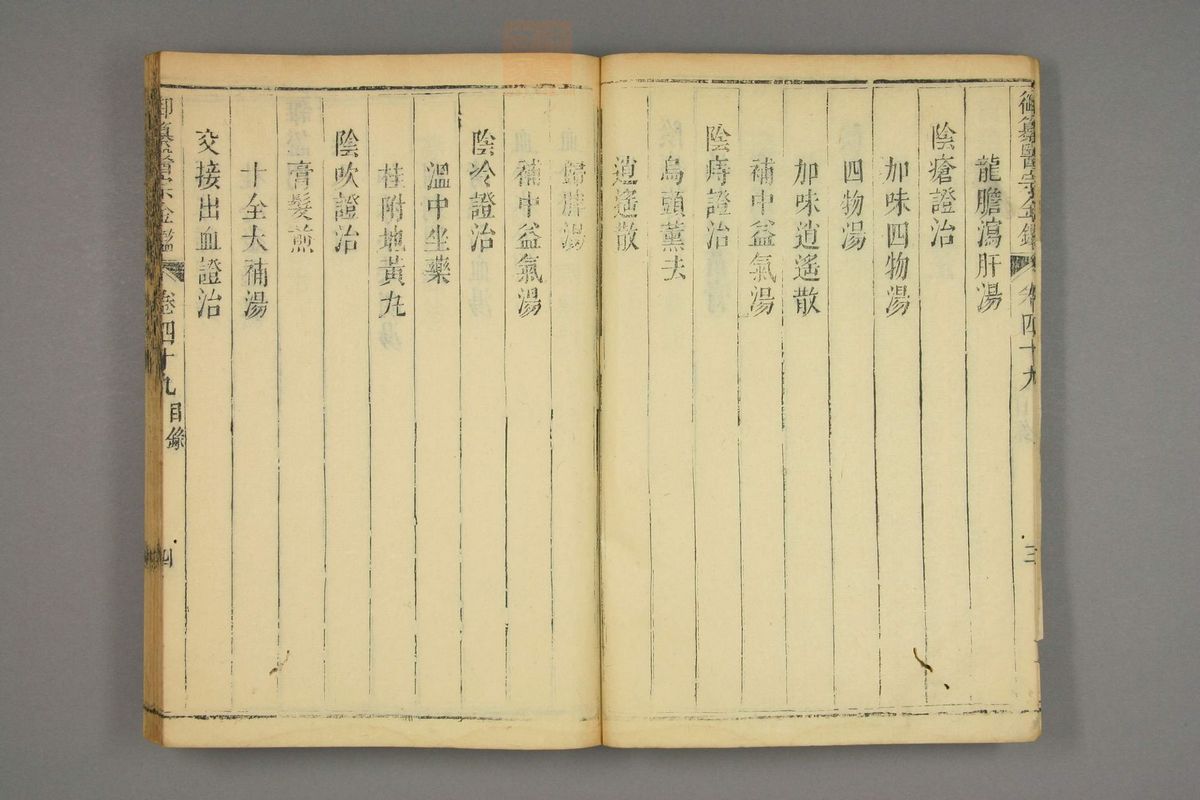 御纂醫宗金鑑 卷四十九 三
龍膽瀉肝湯
陰瘡證治
加味四物湯
四物湯
加味逍遙散
補中益氣湯
陰痔證治
烏頭薰法
逍遙散
歸脾湯
補中益氣湯
陰冷證治
溫中坐藥
桂附地黃丸
陰吹證治
膏髮煎
十全大補湯
交接出血證治
御纂醫宗金鑑 卷四十九 目錄 四